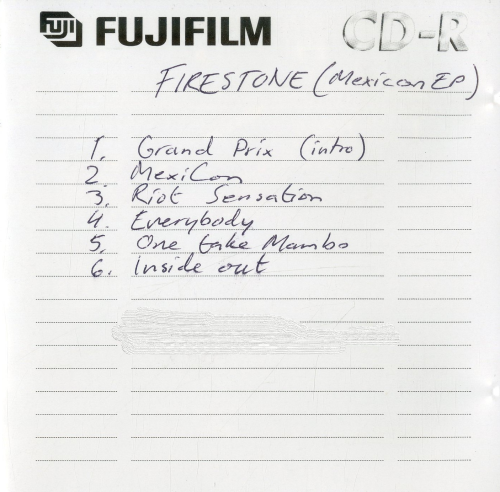 FUJI FUJIFILM CD-R
FIRESTONE (Mexicon EP)
1. Grand Prix (intro)
2. MexiCon
3. Riot Sensation
4. Everybody
5. One take Mambo
6. Inside out